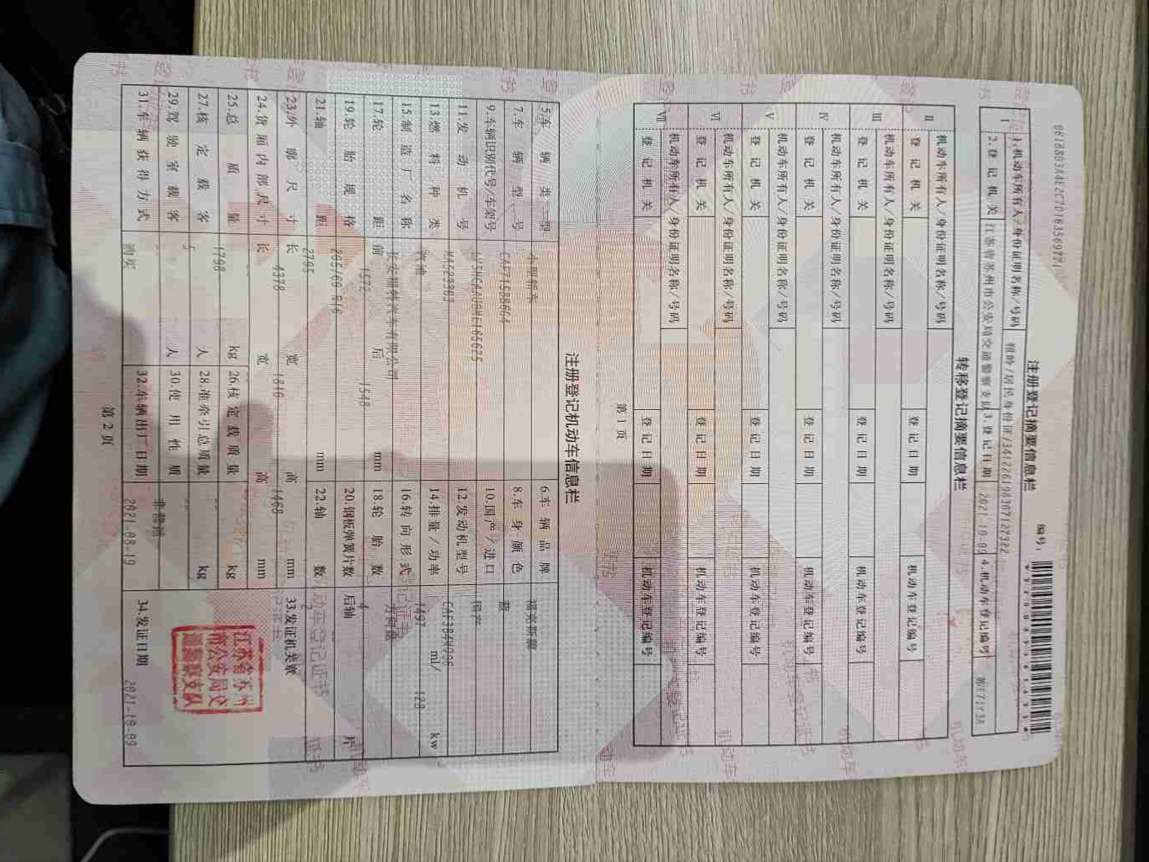 注册登记摘要信息栏
编号:
Ⅰ 1.机动车所有人/身份证明名称/号码
2.登记机关 江苏省苏州市公安局交通警察支队 3.登记日期 2021-10-09 4.机动车登记编号
转移登记摘要信息栏
Ⅱ 机动车所有人/身份证明名称/号码
登记机关 登记日期 机动车登记编号
Ⅲ 机动车所有人/身份证明名称/号码
登记机关 登记日期 机动车登记编号
Ⅳ 机动车所有人/身份证明名称/号码
登记机关 登记日期 机动车登记编号
Ⅴ 机动车所有人/身份证明名称/号码
登记机关 登记日期 机动车登记编号
Ⅵ 机动车所有人/身份证明名称/号码
登记机关 登记日期 机动车登记编号
Ⅶ 机动车所有人/身份证明名称/号码
登记机关 登记日期 机动车登记编号
第1页
注册登记机动车信息栏
5.车辆类型 小型轿车 6.车辆品牌 福克斯牌
7.车辆型号 8.车身颜色 蓝
9.车辆识别代号/车架号 10.国产/进口 国产
11.发动机号 12.发动机型号
13.燃料种类 汽油 14.排量/功率 1497 ml/ 128 kw
15.制造厂名称 长安福特汽车有限公司 16.转向形式 方向盘
17.轮距 前 1572 后 1548 mm 18.轮胎数 4
19.轮胎规格 205/60 R16 20.钢板弹簧片数 后轴 片
21.轴距 2705 mm 22.轴数 2
23.外廓尺寸 长 4378 宽 1810 高 1468 mm 33.发证机关章
24.货厢内部尺寸 长 宽 高 mm
25.总质量 1798 kg 26.核定载质量 kg
27.核定载客 5 人 28.准牵引总质量 kg
29.驾驶室载客 人 30.使用性质 非营运
31.车辆获得方式 购买 32.车辆出厂日期 2021-08-19 34.发证日期 2021-10-09
江苏省苏州
市公安局交
通警察支队
第2页